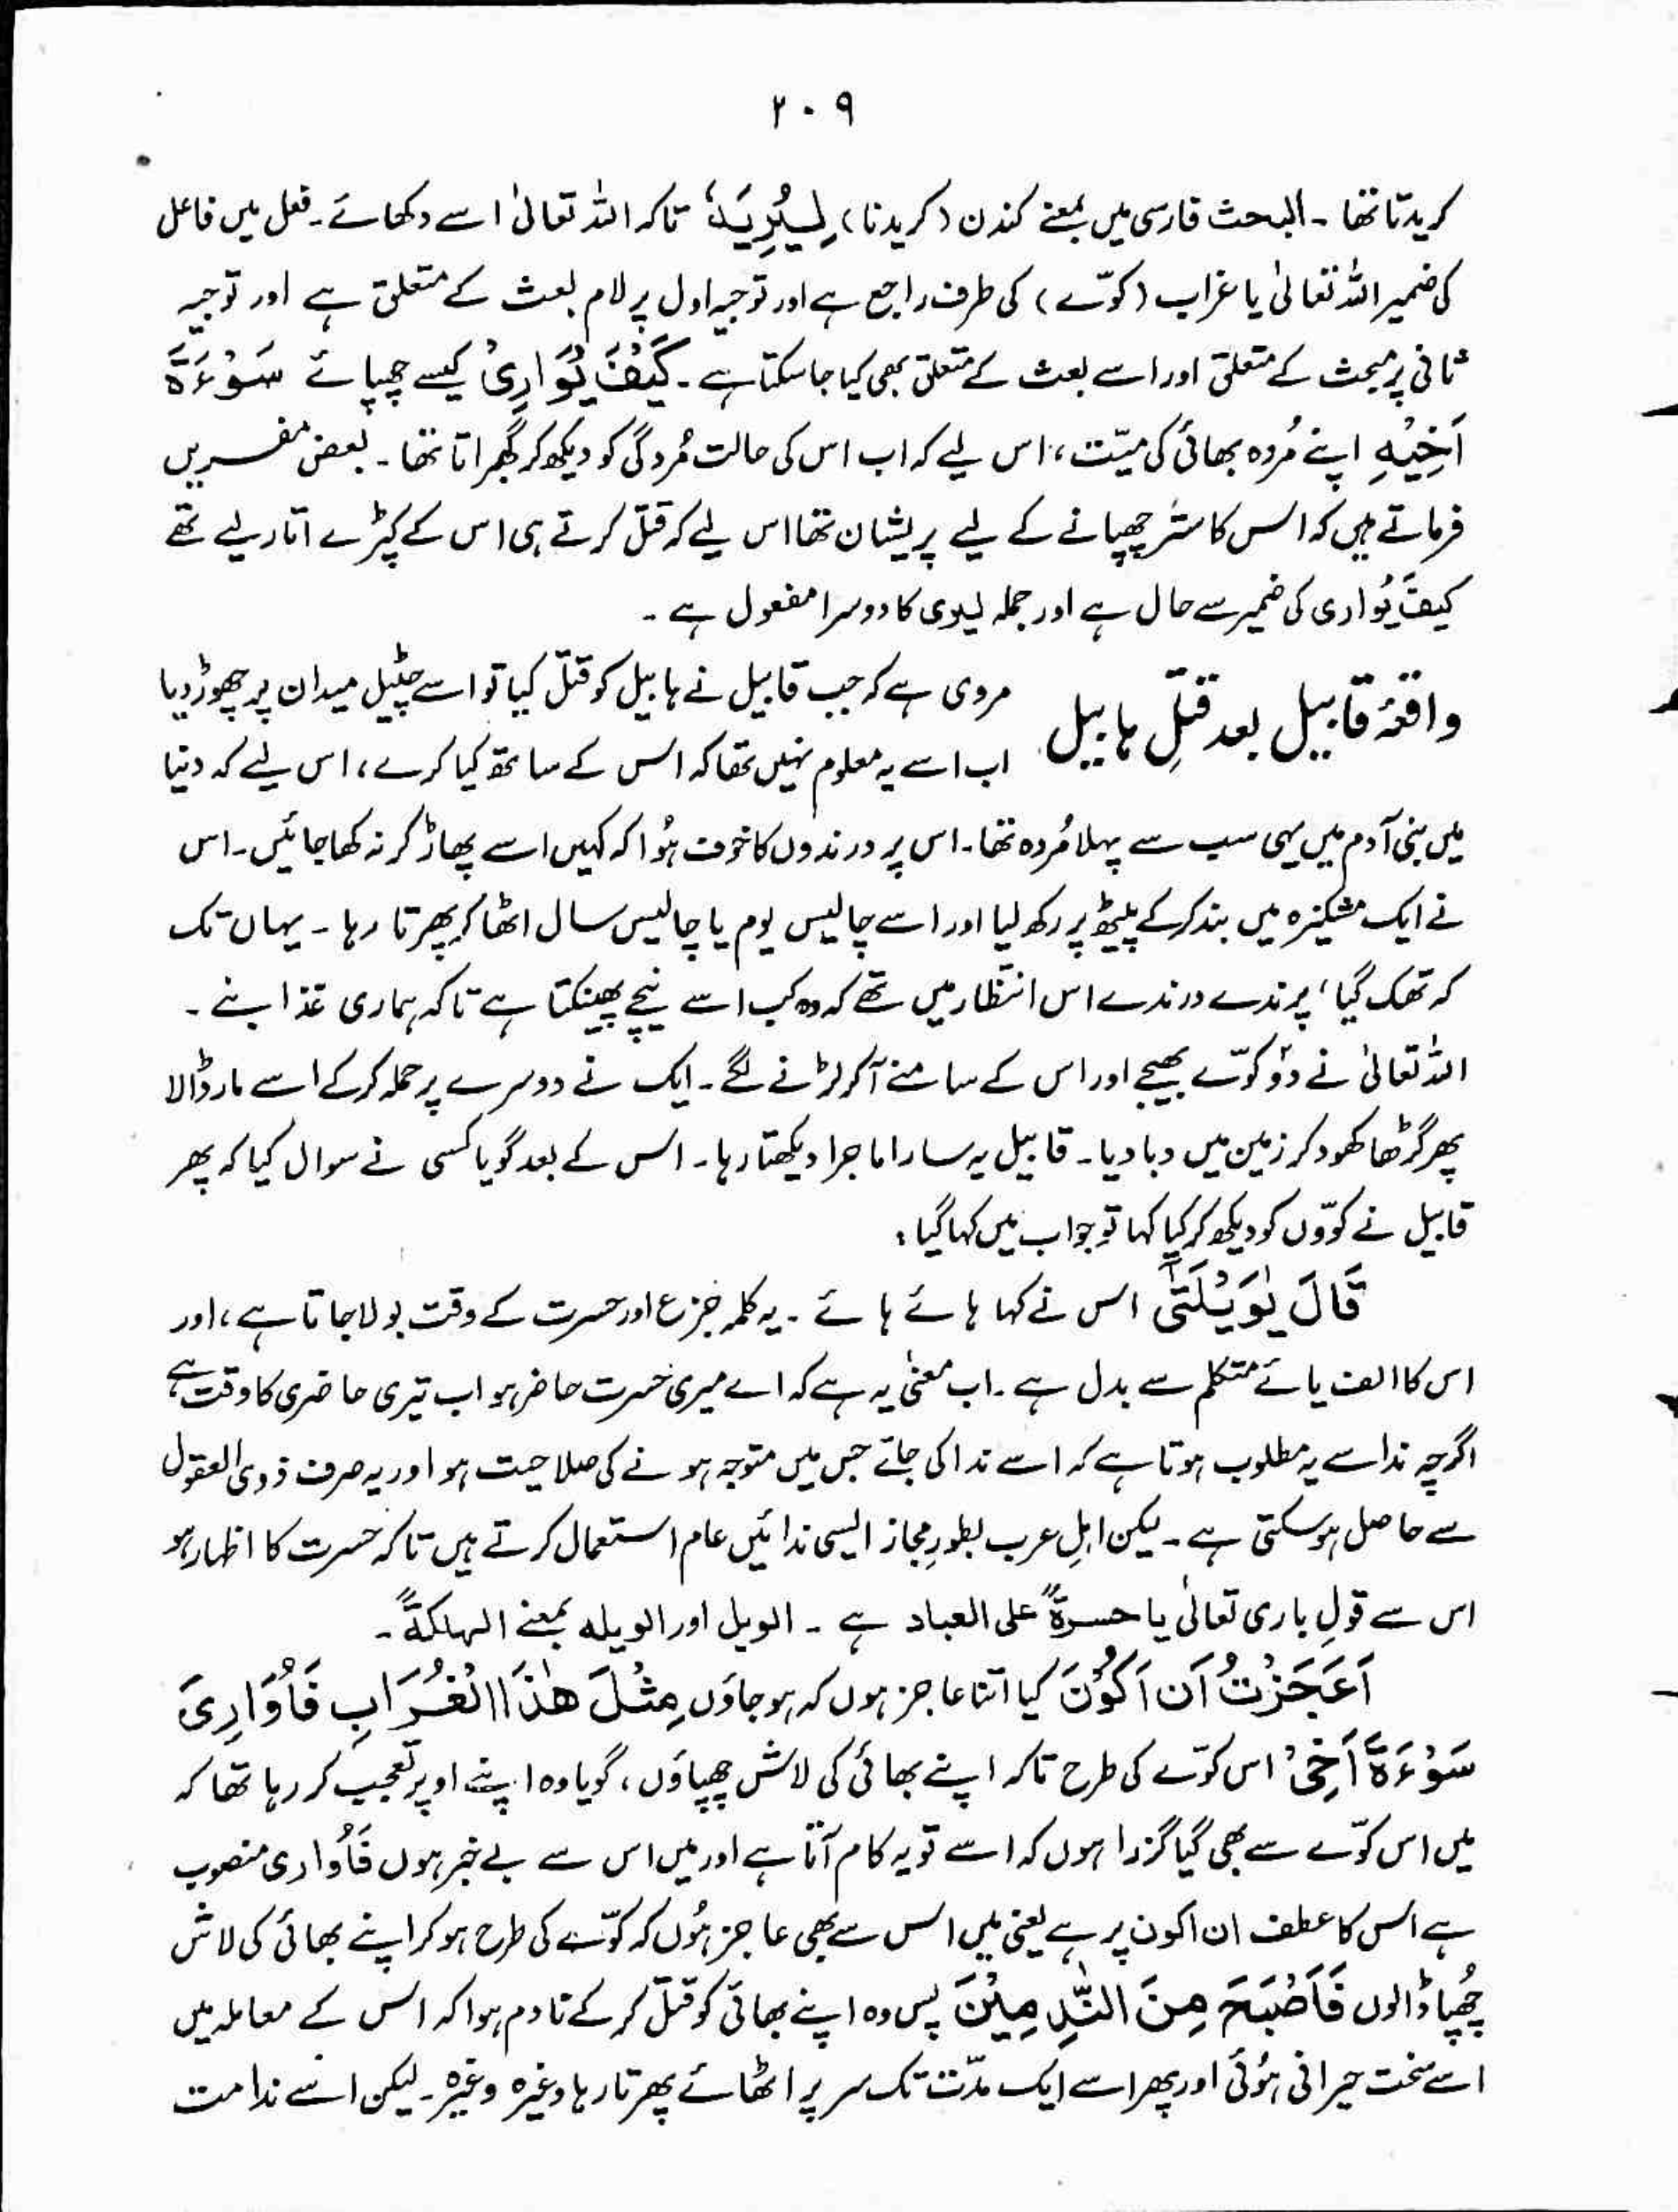 ۲۰۹
کریدتا تھا ۔ البحث فارسی میں بمعنے کندن (کریدنا) لِیُرِیَہٗ تاکہ اللہ تعالیٰ اسے دکھائے ۔ فعل میں فاعل
کی ضمیر اللہ تعالیٰ یا غراب (کوّے) کی طرف راجع ہے اور توجیہِ اول پر لام بعث کے متعلق ہے اور توجیہ
ثانی پر یبحث کے متعلق اور اسے بعث کے متعلق بھی کیا جا سکتا ہے ۔ کَیْفَ یُوَارِیْ کیسے چھپائے سَوْءَۃَ
اَخِیْہِ اپنے مُردہ بھائی کی میّت ، اس لیے کہ اب اس کی حالت مُردگی کو دیکھ کر گھبراتا تھا ۔ بعض مفسریں
فرماتے ہیں کہ اس کا ستر چھپانے کے لیے پریشان تھا اس لیے کہ قتل کرتے ہی اس کے کپڑے اتار لیے تھے
کیفَ یُواری کی ضمیر سے حال ہے اور جملہ لیری کا دوسرا مفعول ہے ۔
واقعۂ قابیل بعد قتلِ ہابیل
مروی ہے کہ جب قابیل نے ہابیل کو قتل کیا تو اسے چٹیل میدان پر چھوڑ دیا
اب اسے یہ معلوم نہیں تھا کہ اس کے ساتھ کیا کرے ، اس لیے کہ دنیا
میں بنی آدم میں یہی سب سے پہلا مُردہ تھا ۔ اس پر درندوں کا خوف ہُوا کہ کہیں اسے پھاڑ کر نہ کھا جائیں ۔ اس
نے ایک مشکیزہ میں بند کر کے پیٹھ پر رکھ لیا اور اسے چالیس یوم یا چالیس سال اٹھا کر پھرتا رہا ۔ یہاں تک
کہ تھک گیا ، پرندے درندے اس انتظار میں تھے کہ وہ کب اسے نیچے پھینکتا ہے تاکہ ہماری غذا بنے ۔
اللہ تعالیٰ نے دو کوّے بھیجے اور اس کے سامنے آ کر لڑنے لگے ۔ ایک نے دوسرے پر حملہ کر کے اسے مار ڈالا
پھر گڑھا کھود کر زمین میں دبا دیا ۔ قابیل یہ سارا ماجرا دیکھتا رہا ۔ اس کے بعد گویا کسی نے سوال کیا کہ پھر
قابیل نے کوّوں کو دیکھ کر کیا کہا تو جواب میں کہا گیا :
قَالَ یٰوَیْلَتٰۤی اس نے کہا ہائے ہائے ۔ یہ کلمہ جزع اور حسرت کے وقت بولا جاتا ہے ، اور
اس کا الف یائے متکلم سے بدل ہے ۔ اب معنیٰ یہ ہے کہ اے میری حسرت حاضر ہو اب تیری حاضری کا وقت ہے ،
اگرچہ ندا سے یہ مطلوب ہوتا ہے کہ اسے ندا کی جائے جس میں متوجہ ہونے کی صلاحیت ہو اور یہ صرف ذوی العقول
سے حاصل ہو سکتی ہے ۔ لیکن اہلِ عرب بطورِ مجاز ایسی ندائیں عام استعمال کرتے ہیں تاکہ حسرت کا اظہار ہو
اس سے قولِ باری تعالیٰ یا حسرۃً علی العباد ہے ۔ الویل اور الویلہ بمعنے الہلکۃً ۔
اَعَجَزْتُ اَن اَکُوْنَ کیا اتنا عاجز ہوں کہ ہو جاؤں مِثْلَ ھٰذَا الْغُرَابِ فَاُوَارِیَ
سَوْءَۃَ اَخِیْ اس کوّے کی طرح تاکہ اپنے بھائی کی لاش چھپاؤں ، گویا وہ اپنے اوپر تعجب کر رہا تھا کہ
میں اس کوّے سے بھی گیا گزرا ہوں کہ اسے تو یہ کام آتا ہے اور میں اس سے بے خبر ہوں فَاُواری منصوب
ہے اس کا عطف ان اکون پر ہے یعنی میں اس سے بھی عاجز ہُوں کہ کوّے کی طرح ہو کر اپنے بھائی کی لاش
چُھپا ڈالوں فَاَصْبَحَ مِنَ النّٰدِمِیْنَ پس وہ اپنے بھائی کو قتل کر کے نادم ہوا کہ اس کے معاملہ میں
اسے سخت حیرانی ہُوئی اور پھر اسے ایک مدّت تک سر پر اٹھائے پھرتا رہا وغیرہ وغیرہ ۔ لیکن اسے ندامت